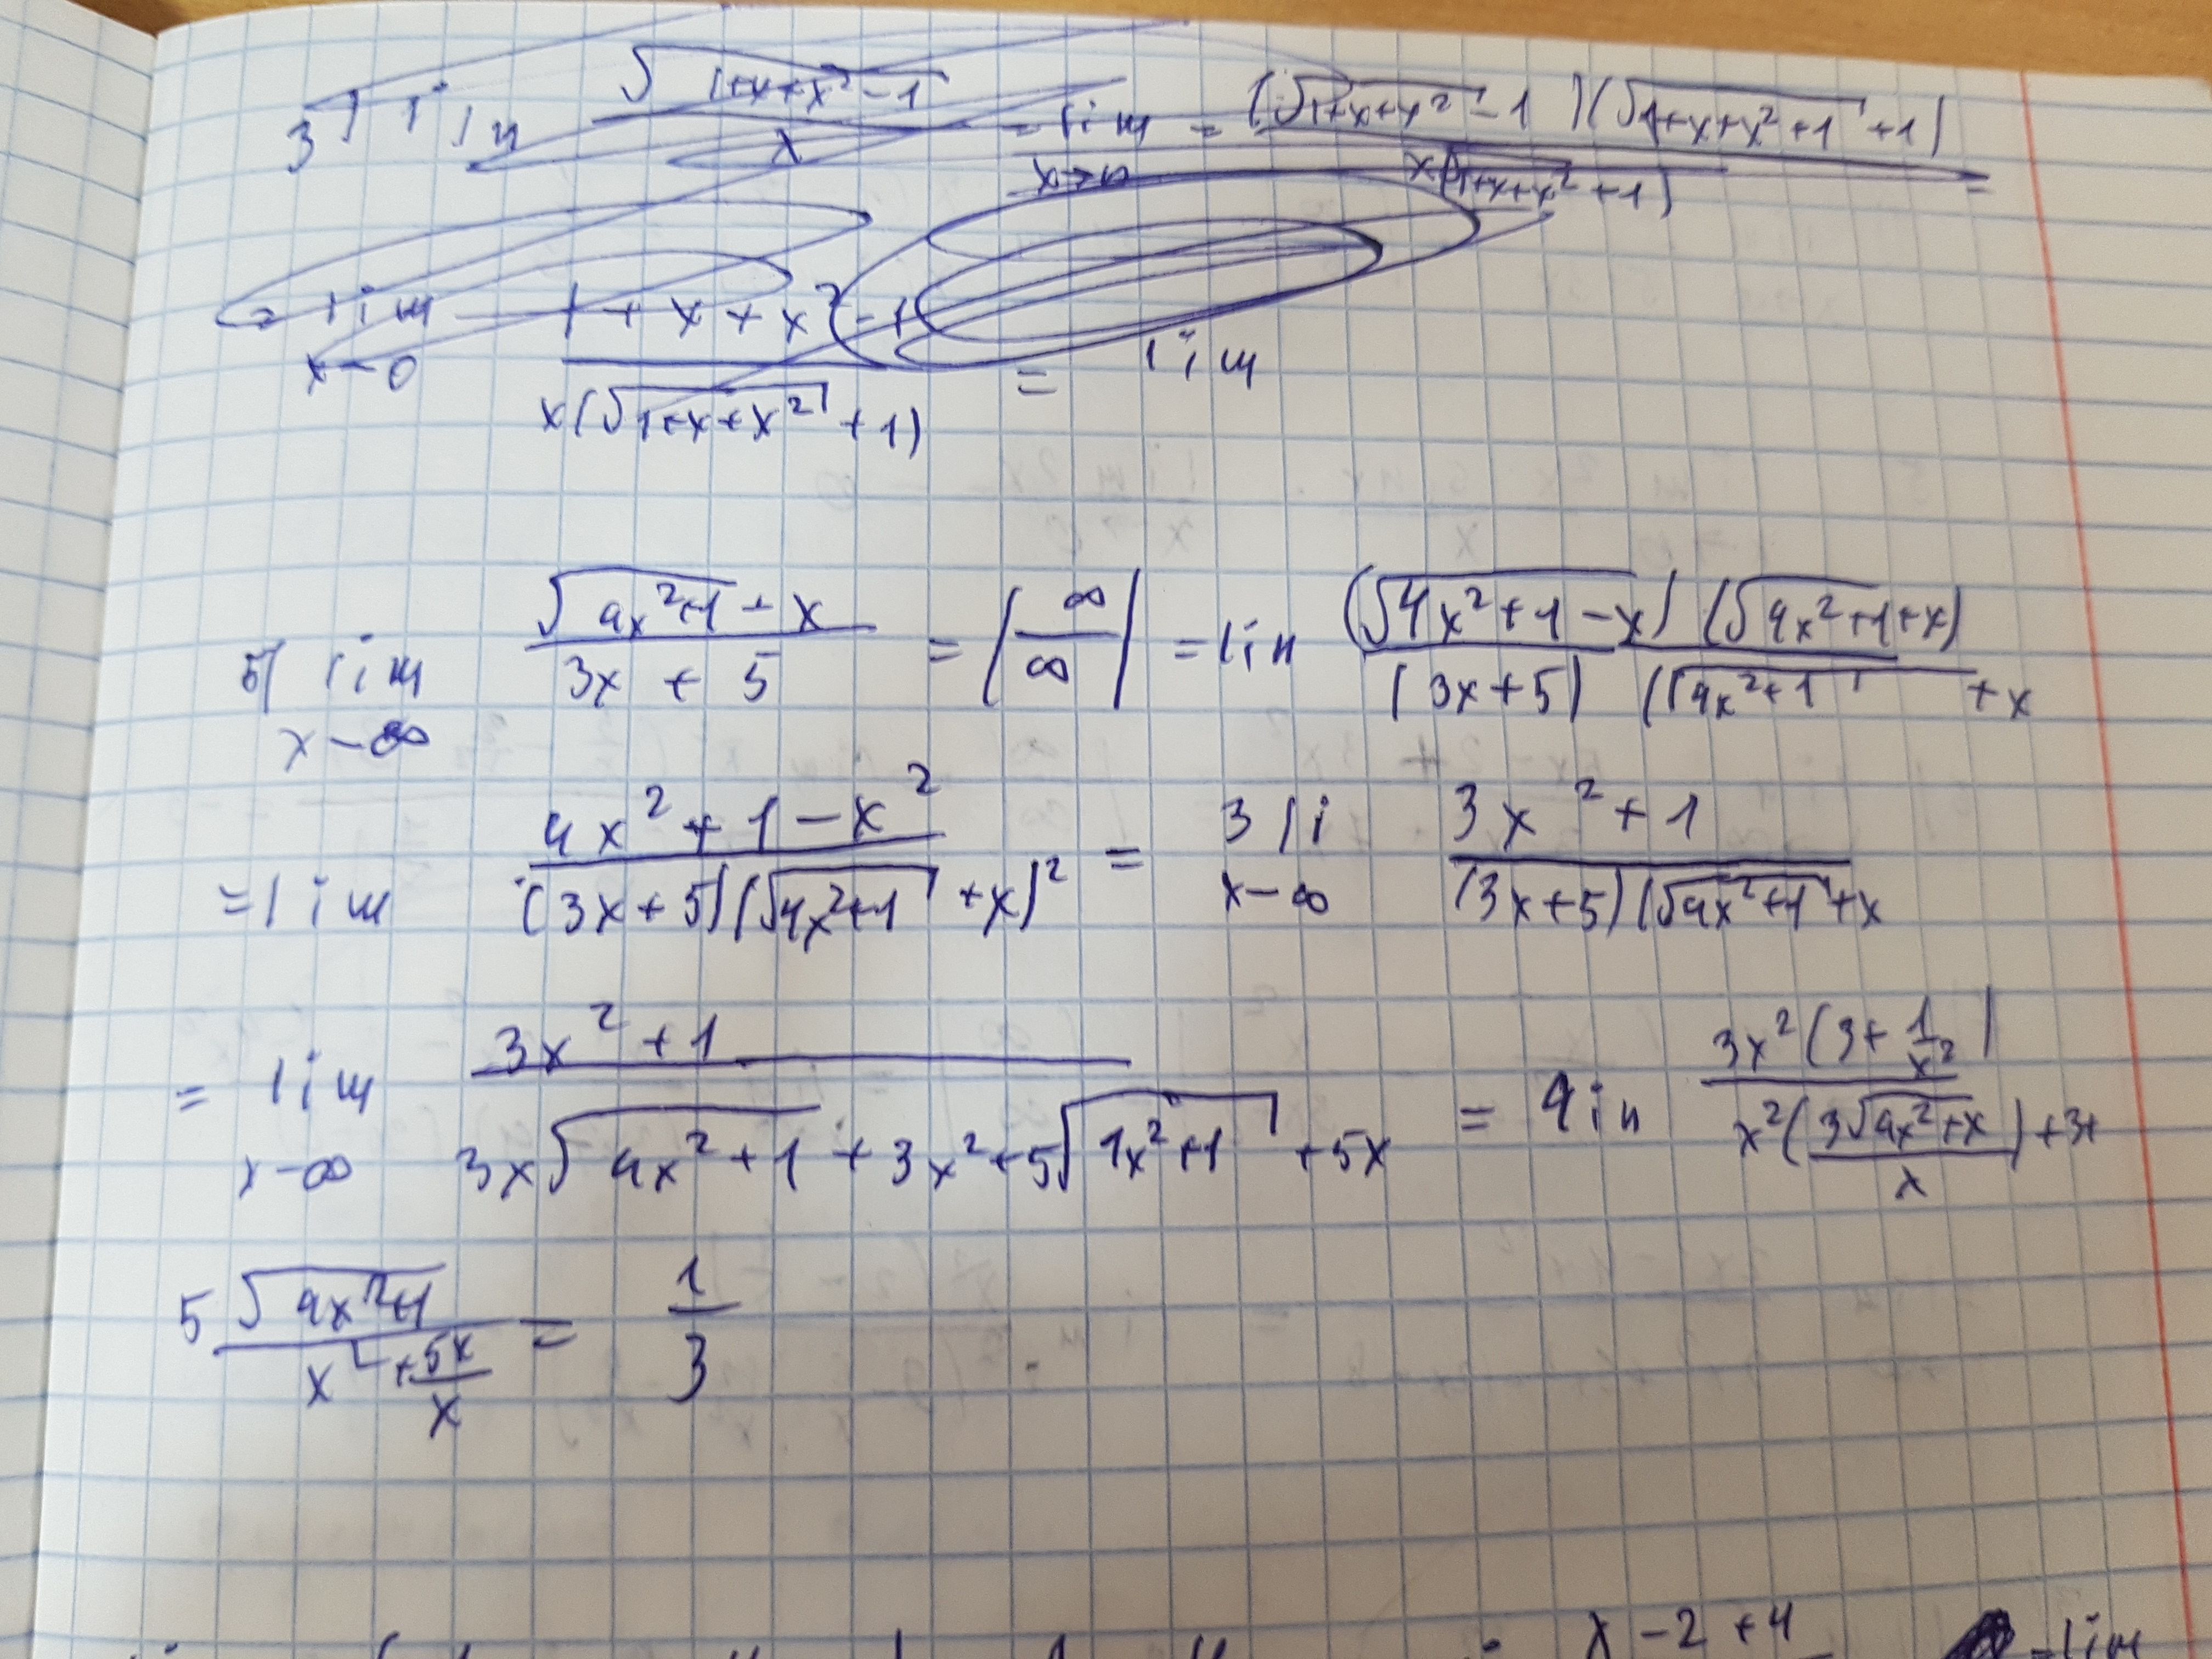 3) lim √(1+x+x²-1) / x = lim x→0 = (√(1+x+x²) - 1)(√(1+x+x²+1) + 1) / x(√(1+x+x²) + 1) =
= lim x→0 1 + x + x² - 1 / x(√(1+x+x²) + 1) = lim
5) lim x→∞ √(4x²+1) - x / 3x + 5 = |∞/∞| = lim (√(4x²+1 - x) (√(4x²+1)+x) / (3x+5) (√(4x²+1) + x
= lim 4x² + 1 - x² / (3x+5)(√(4x²+1) + x)² = 3 li x→∞ 3x² + 1 / (3x+5)(√(4x²+1) + x
= lim x→∞ 3x² + 1 / 3x√(4x²+1) + 3x² + 5√(4x²+1) + 5x = lim 3x²(3 + 1/x²) / x²(3√(4x²+x) / x) + 3+
5 √(4x²+1) / x² + 5x/x = 1/3
x - 2 + 4 = lim